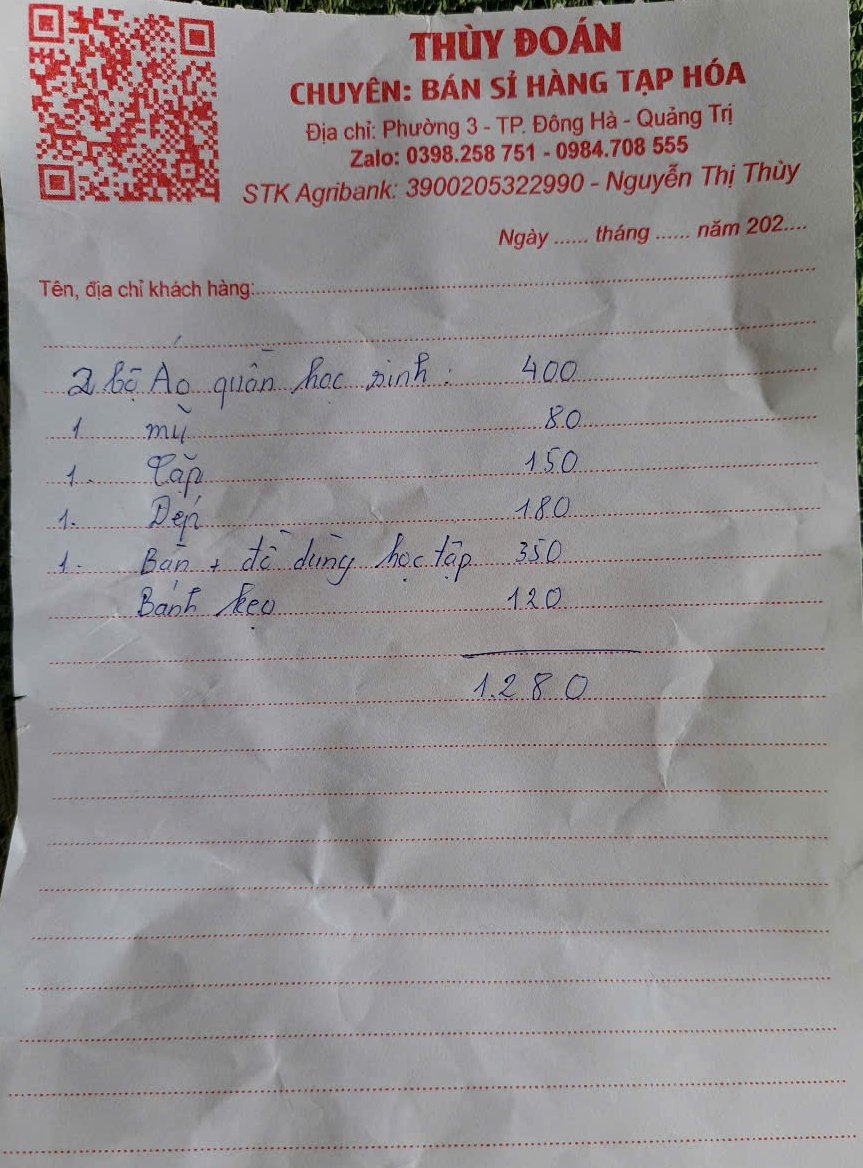 THÙY ĐOÁN
CHUYÊN: BÁN SỈ HÀNG TẠP HÓA
Địa chỉ: Phường 3 - TP. Đông Hà - Quảng Trị
Zalo: 0398.258 751 - 0984.708 555
STK Agribank: 3900205322990 - Nguyễn Thị Thùy
Ngày ...... tháng ...... năm 202....
Tên, địa chỉ khách hàng:
2 bộ Áo quần học sinh : 400
1 mũ 80
1. Cặp 150
1. Dép 180
1. Bàn + đồ dùng học tập 350
Bánh kẹo 120
1.280